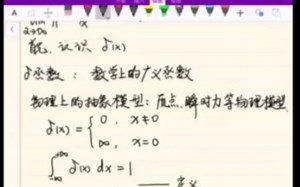 α→∞ π x
能，认识 δ(x)
δ函数：数学上的广义函数
物理上的抽象模型：质点，瞬时力等物理模型.
δ(x) = { 0, x≠0
∞, x=0
∫_{-∞}^{+∞} δ(x) dx = 1
—— 定义